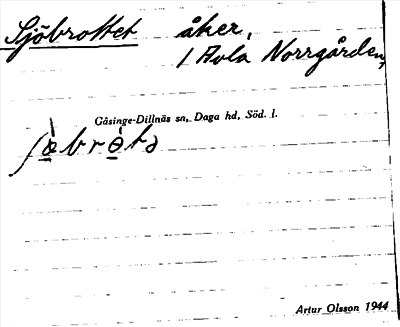 Sjöbrottet åker,
1 Avla Norrgården,
Gåsinge-Dillnäs sn, Daga hd, Söd. l.
Artur Olsson 1944